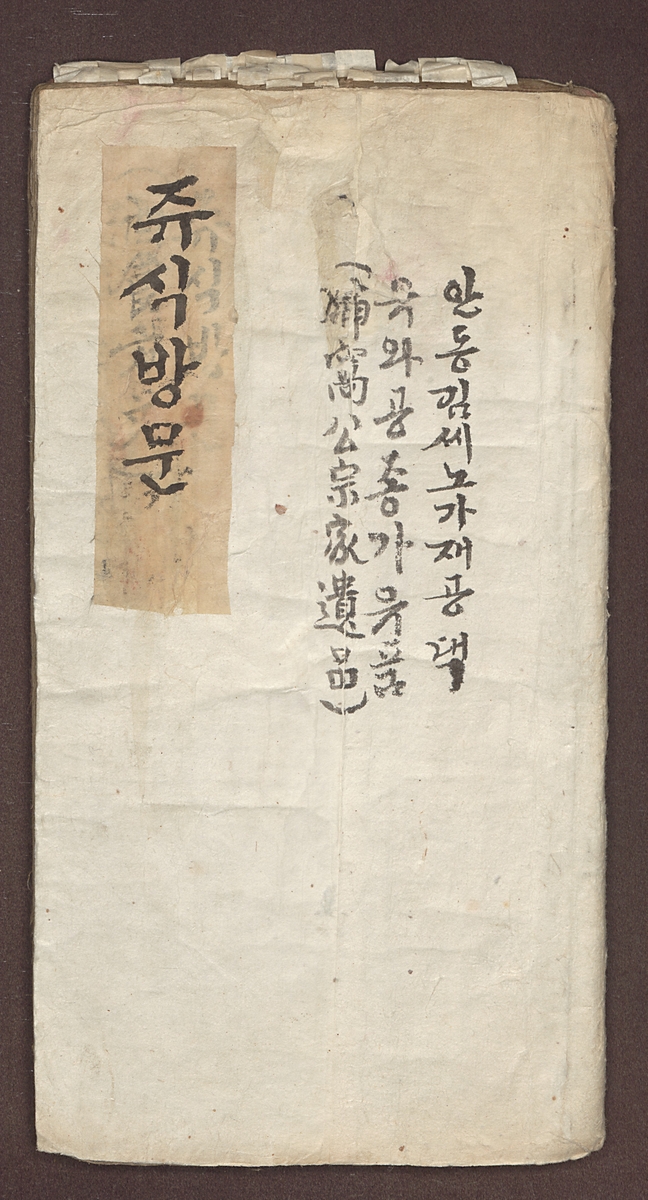 안동김씨노가재공댁
유와공종가유품
窩公宗家遺品)
쥬식방문